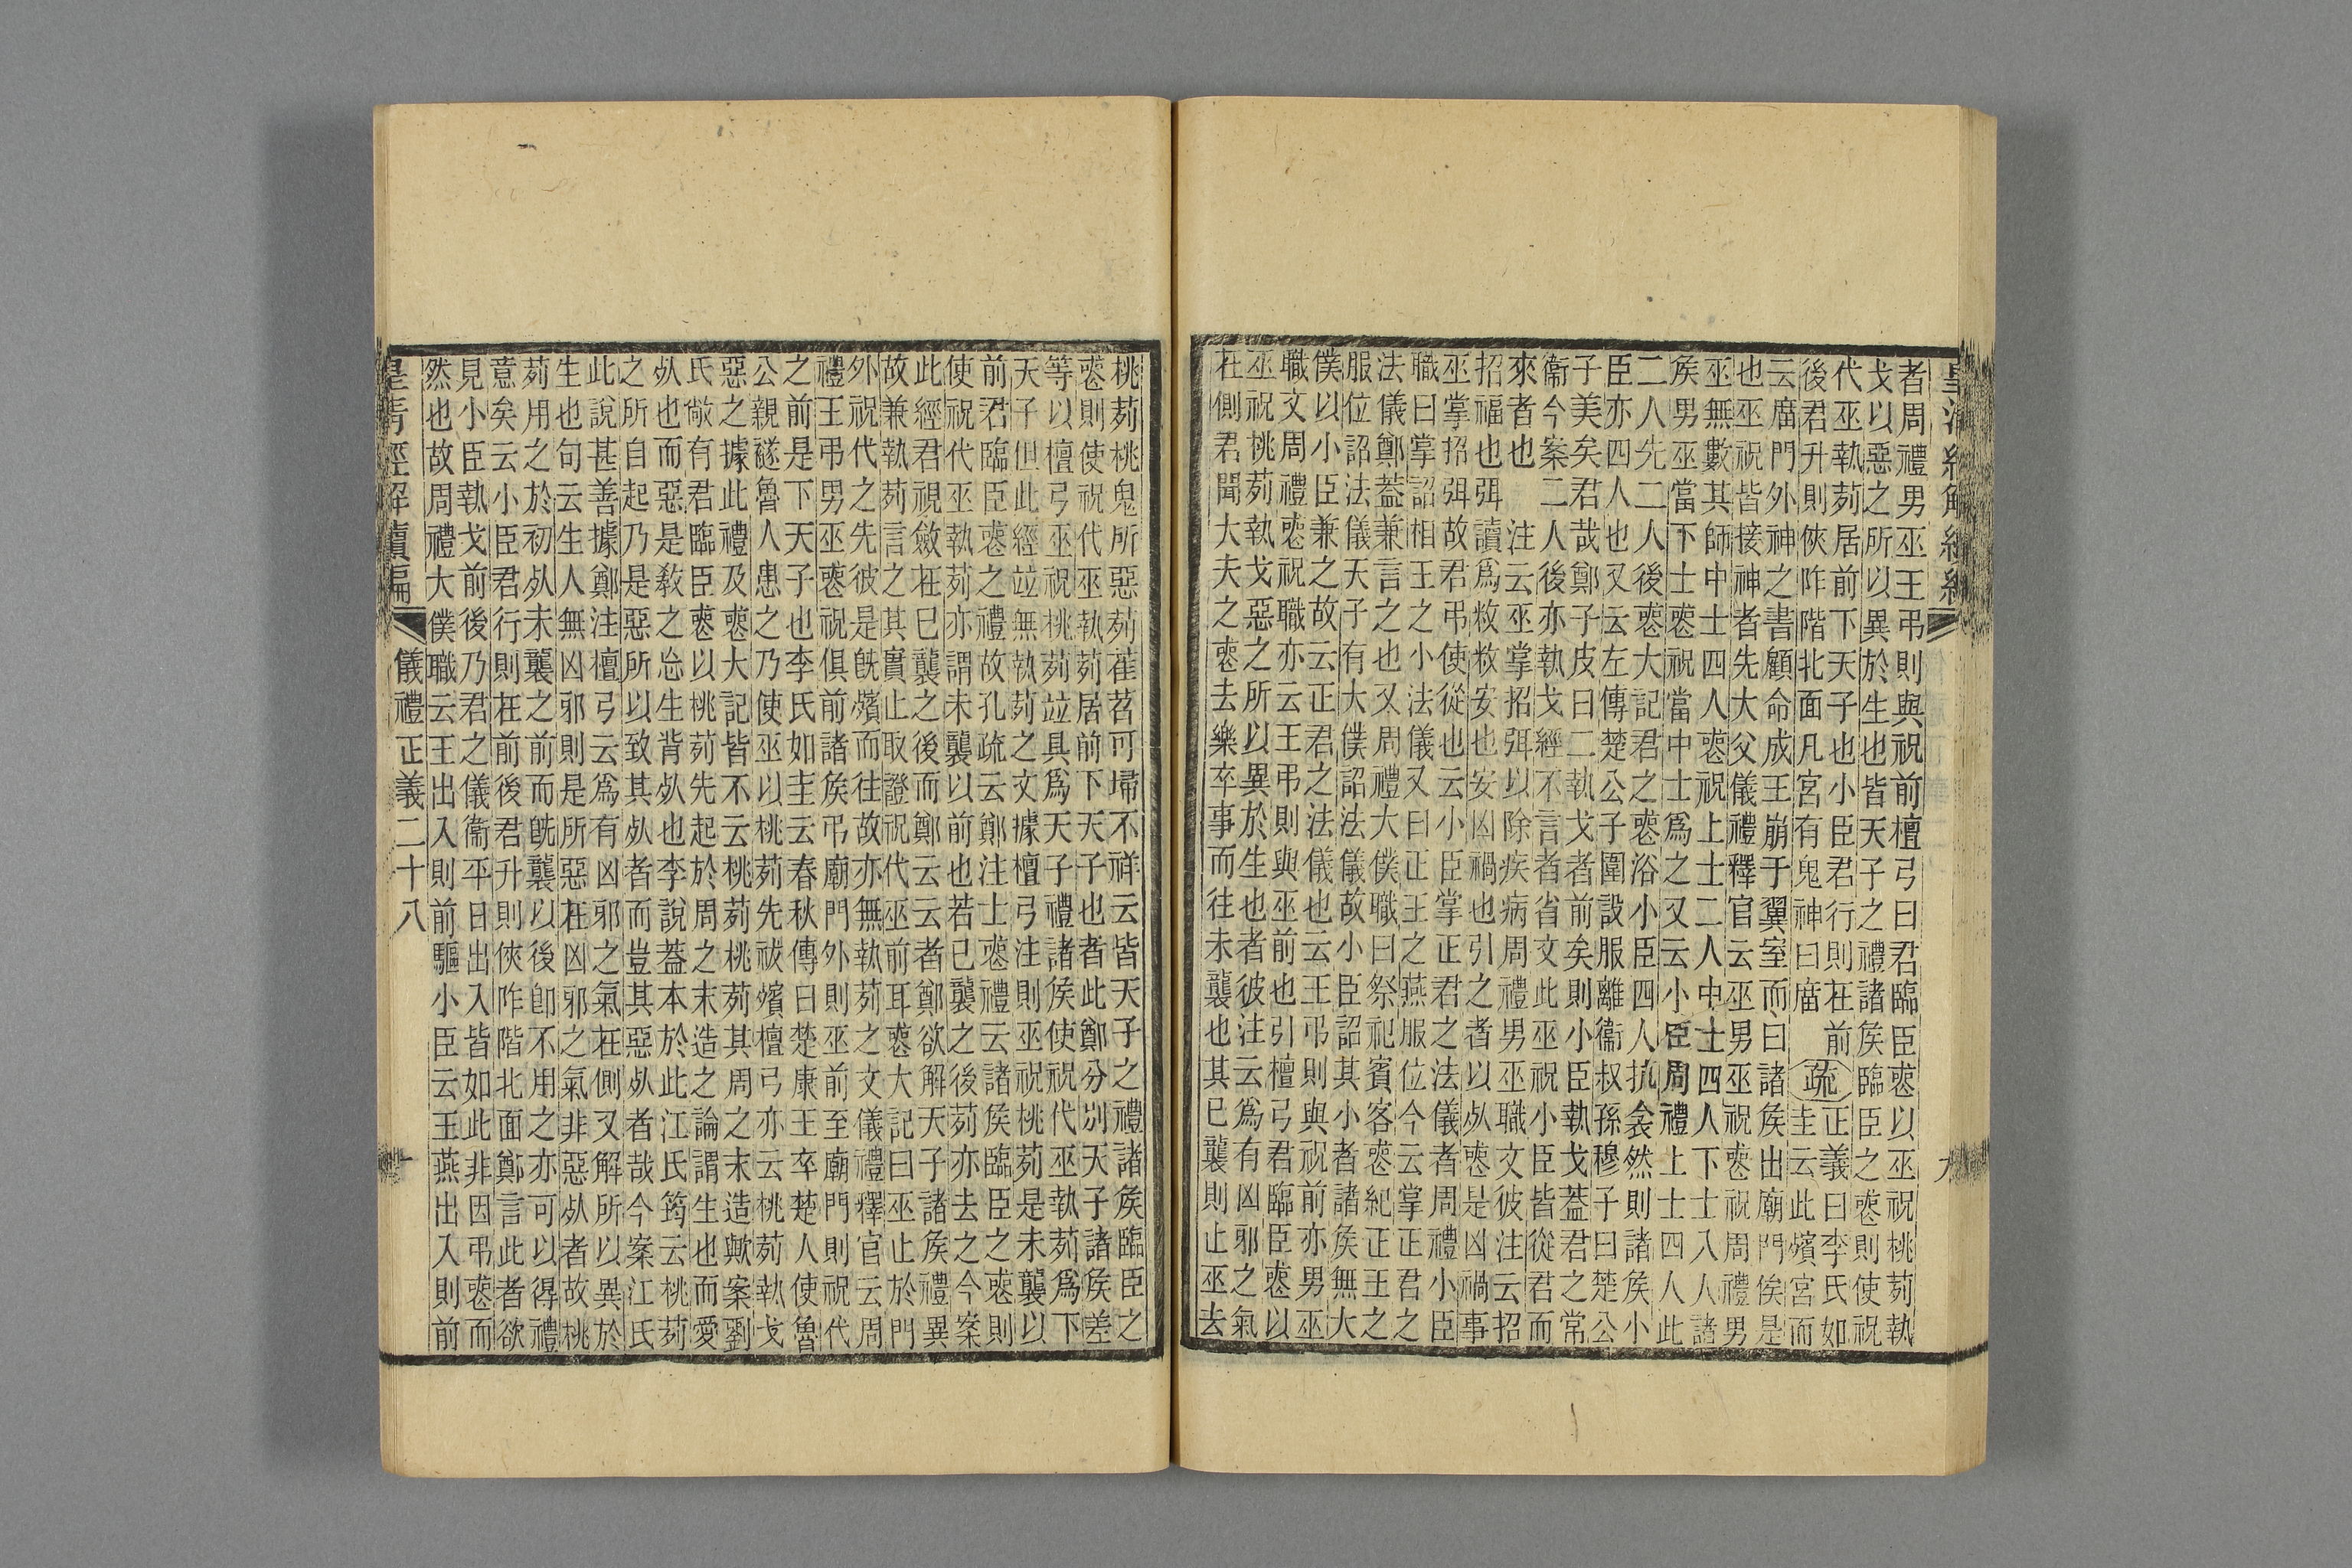 皇清經解續編 九
者周禮男巫王弔則與祝前檀弓曰君臨臣喪以巫祝桃茢執
戈以惡之所以異於生也皆天子之禮諸矦臨臣之喪則使祝
代巫執茢居前下天子也小臣君行則在前
後君升則俠阼階北面凡宮有鬼神曰庿
疏
正義曰李氏如
圭云此殯宮而
云庿門外神之書顧命成王崩于翼室而曰諸矦出廟門俟是
也巫祝皆接神者先大父儀禮釋官云巫男巫祝喪祝周禮男
巫無數其師中士四人喪祝上士二人中士四人下士八人諸
矦男巫當下士喪祝當中士爲之又云小臣周禮上士四人此
二人先二人後喪大記君之喪浴小臣四人抗衾然則諸矦小
臣亦四人也又云左傳楚公子圍設服離衞叔孫穆子曰楚公
子美矣君哉鄭子皮曰二執戈者前矣則小臣執戈蓋君之常
衞今案二人後亦執戈經不言者省文此巫祝小臣皆從君而
來者也 注云巫掌招弭以除疾病周禮男巫職文彼注云招
招福也弭讀爲敉敉安也安凶禍也引之者以死喪是凶禍事
巫掌招弭故君弔使從也云小臣掌正君之法儀者周禮小臣
職曰掌詔相王之小法儀又曰正王之燕服位今云掌正君之
法儀鄭蓋兼言之也又周禮大僕職曰祭祀賓客喪紀正王之
服位詔法儀天子有大僕詔法儀故小臣詔其小者諸矦無大
僕以小臣兼之故云正君之法儀也云王弔則與祝前亦男巫
職文周禮喪祝職亦云王弔則與巫前也引檀弓君臨臣喪以
巫祝桃茢執戈惡之所以異於生也者彼注云爲有凶邪之氣
在側君聞大夫之喪去樂卒事而往未襲也其已襲則止巫去
桃茢桃鬼所惡茢萑苕可埽不祥云皆天子之禮諸矦臨臣之
喪則使祝代巫執茢居前下天子也者此鄭分別天子諸矦差
等以檀弓巫祝桃茢竝具爲天子禮諸矦使祝代巫執茢爲下
天子但此經竝無執茢之文據檀弓注則巫祝桃茢是未襲以
前君臨臣喪之禮故孔疏云鄭注士喪禮云諸矦臨臣之喪則
使祝代巫執茢亦謂未襲以前也若已襲之後茢亦去之今案
此經君視斂在已襲之後而鄭云云者鄭欲解天子諸矦禮異
故兼執茢言之其實止取證祝代巫前耳喪大記曰巫止於門
外祝代之先彼是旣殯而往故亦無執茢之文儀禮釋官云周
禮王弔男巫喪祝俱前諸矦弔廟門外則巫前至廟門則祝代
之前是下天子也李氏如圭云春秋傳曰楚康王卒楚人使魯
公親襚魯人患之乃使巫以桃茢先祓殯檀弓亦云桃茢執戈
惡之據此禮及喪大記皆不云桃茢桃茢其周之末造歟案劉
氏敞有君臨臣喪以桃茢先起於周之末造之論謂生也而愛
死也而惡是敎之忘生背死也李說蓋本於此江氏筠云桃茢
之所自起乃是惡所以致其死者而豈其惡死者哉今案江氏
此說甚善據鄭注檀弓云爲有凶邪之氣在側又解所以異於
生也句云生人無凶邪則是所惡在凶邪之氣非惡死者故桃
茢用之於初死未襲之前而旣襲以後卽不用之亦可以得禮
意矣云小臣君行則在前後君升則俠阼階北面鄭言此者欲
見小臣執戈前後乃君之儀衞平日出入皆如此非因弔喪而
然也故周禮大僕職云王出入則前驅小臣云王燕出入則前
皇清經解續編 儀禮正義二十八